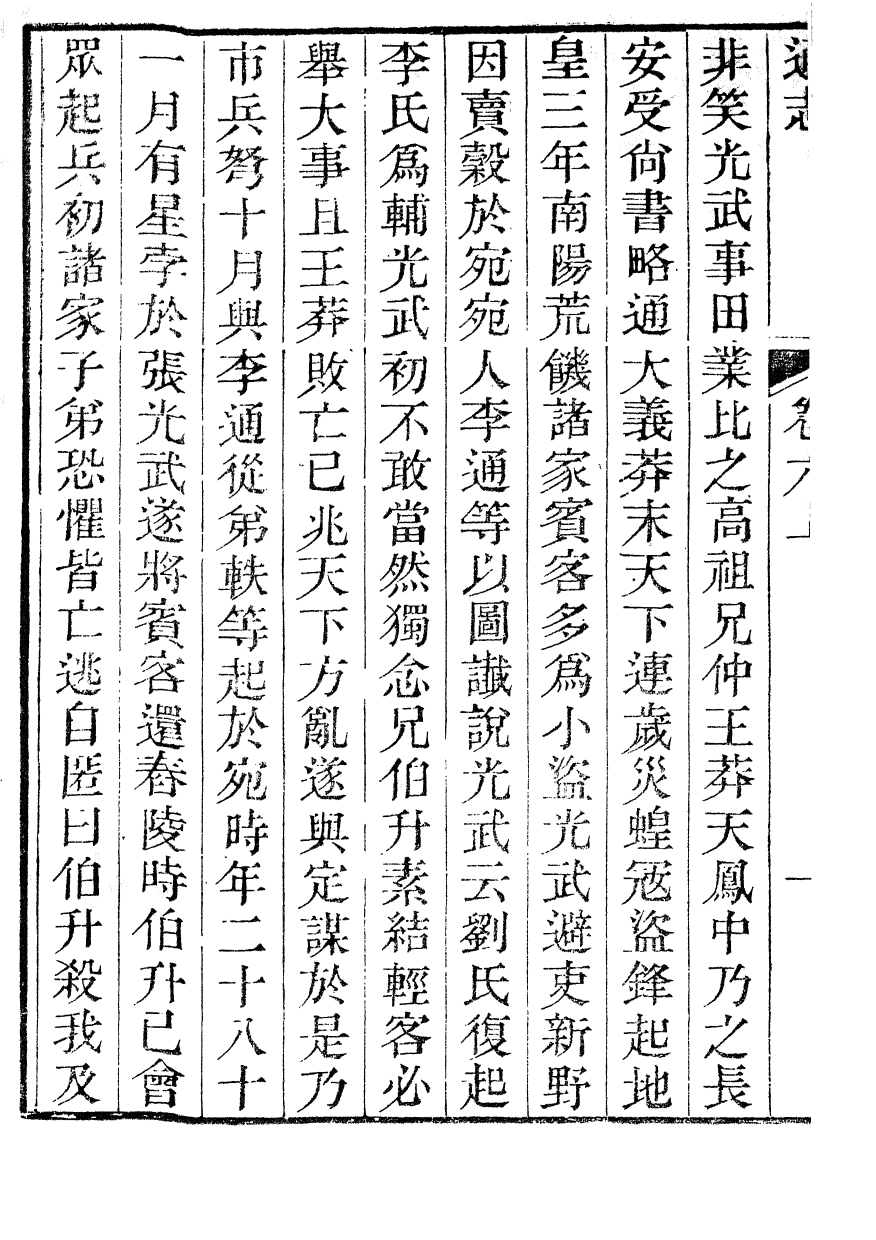 通志　卷六上　一
非笑光武事田業比之高祖兄仲王莽天鳳中乃之長
安受尙書略通大義莽末天下連歲災蝗宼盜鋒起地
皇三年南陽荒饑諸家賓客多爲小盜光武避吏新野
因賣穀於宛宛人李通等以圖讖說光武云劉氏復起
李氏爲輔光武初不敢當然獨念兄伯升素結輕客必
舉大事且王莽敗亡已兆天下方亂遂與定謀於是乃
市兵弩十月與李通從弟軼等起於宛時年二十八十
一月有星孛於張光武遂將賓客還舂陵時伯升已會
眾起兵初諸家子弟恐懼皆亡逃自匿曰伯升殺我及